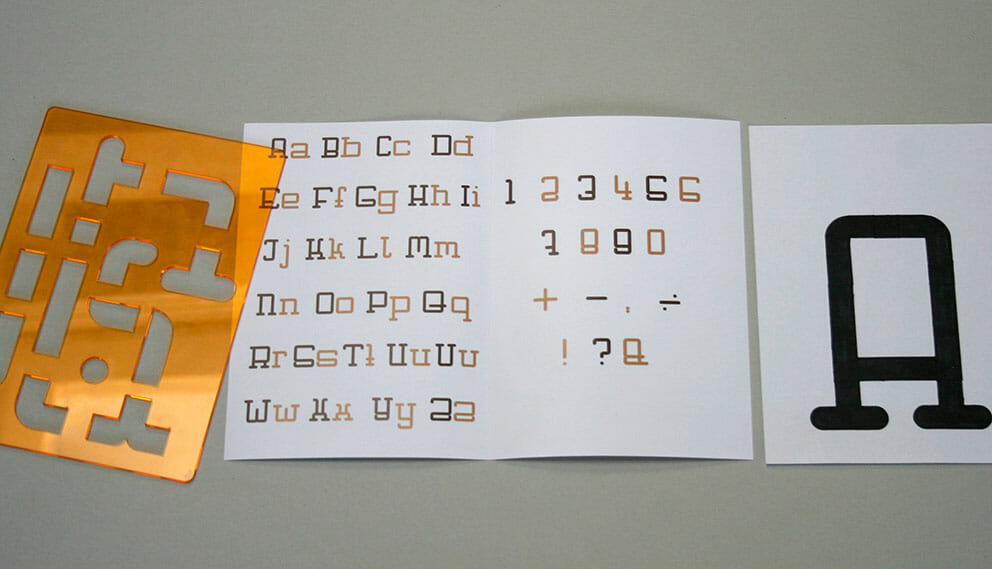 Aa Bb Cc Dd
Ee Ff Gg Hh Ii
Jj Kk Ll Mm
Nn Oo Pp Qq
Rr Ss Tt Uu Vv
Ww Xx Yy Zz
1 2 3 4 5 6
7 8 9 0
+ - . ÷
! ? &
A